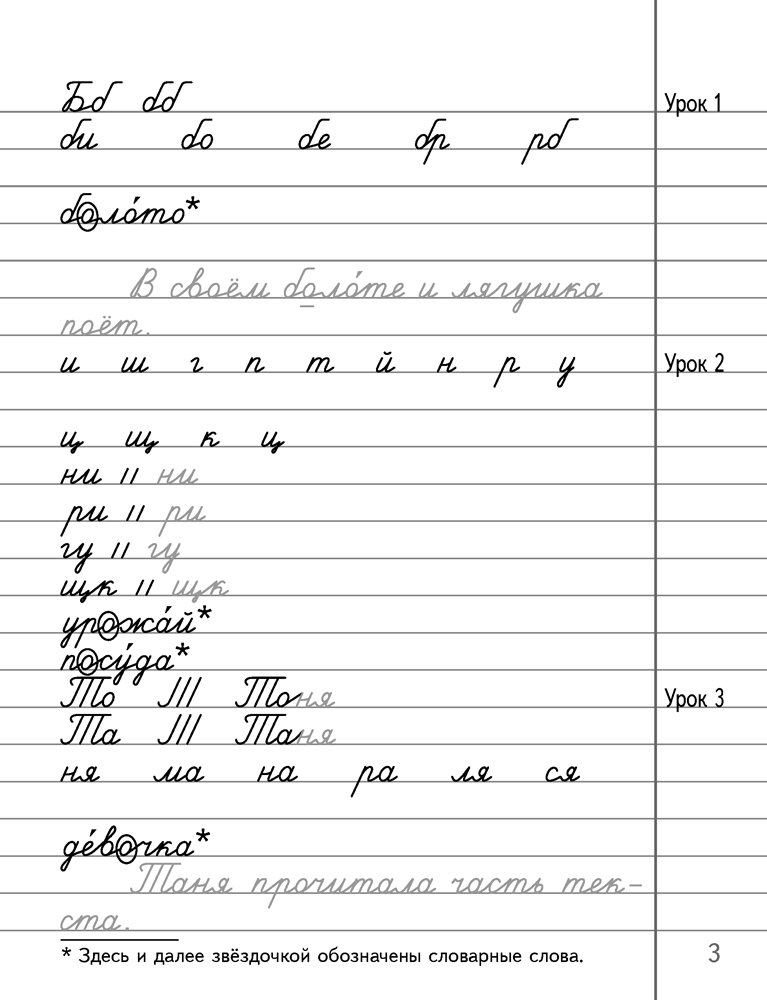 Бб бб Урок 1
би бо бе бр рб
боло́то*
В своём боло́те и лягушка
поёт.
и ш г п т й н р у Урок 2
ц щ к ц
ни || ни
ри || ри
гу || гу
щк || щк
урожа́й*
посу́да*
То ||| Тоня Урок 3
Та ||| Таня
ня ма на ра ля ся
де́вочка*
Таня прочитала часть тек-
ста.
* Здесь и далее звёздочкой обозначены словарные слова. 3